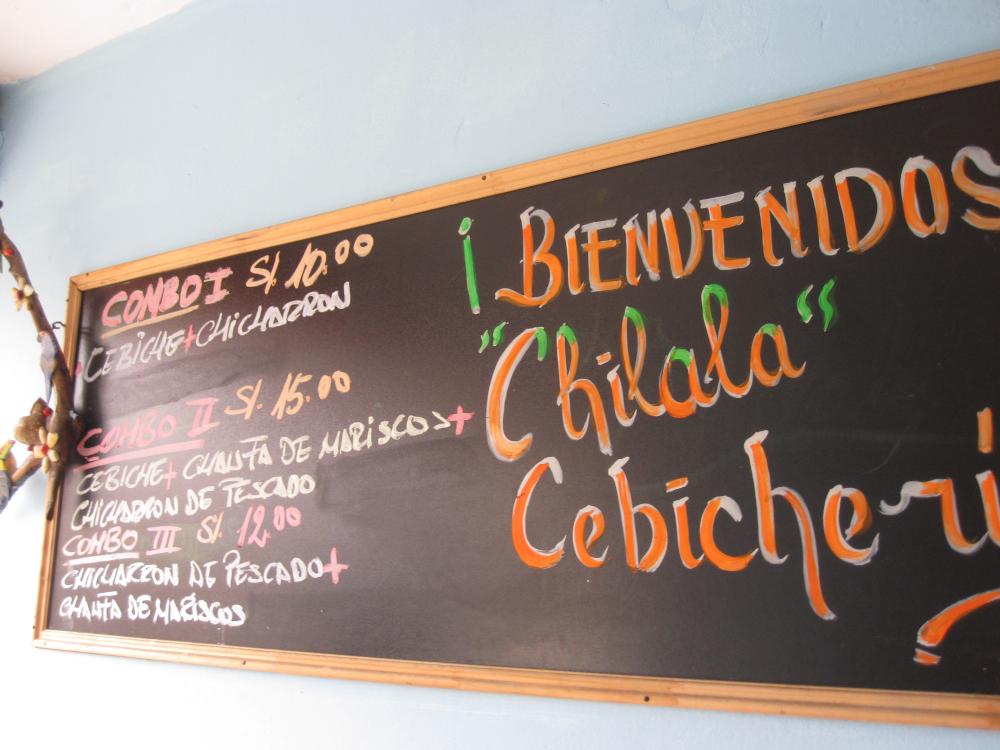 COMBO I S/. 10.00
CEBICHE + CHICHARRON
COMBO II S/. 15.00
CEBICHE + CHAUFA DE MARISCOS +
CHICHARRON DE PESCADO
COMBO III S/. 12.00
CHICHARRON DE PESCADO +
CHAUFA DE MARISCOS
¡BIENVENIDOS
"Chilala"
Cebicheri